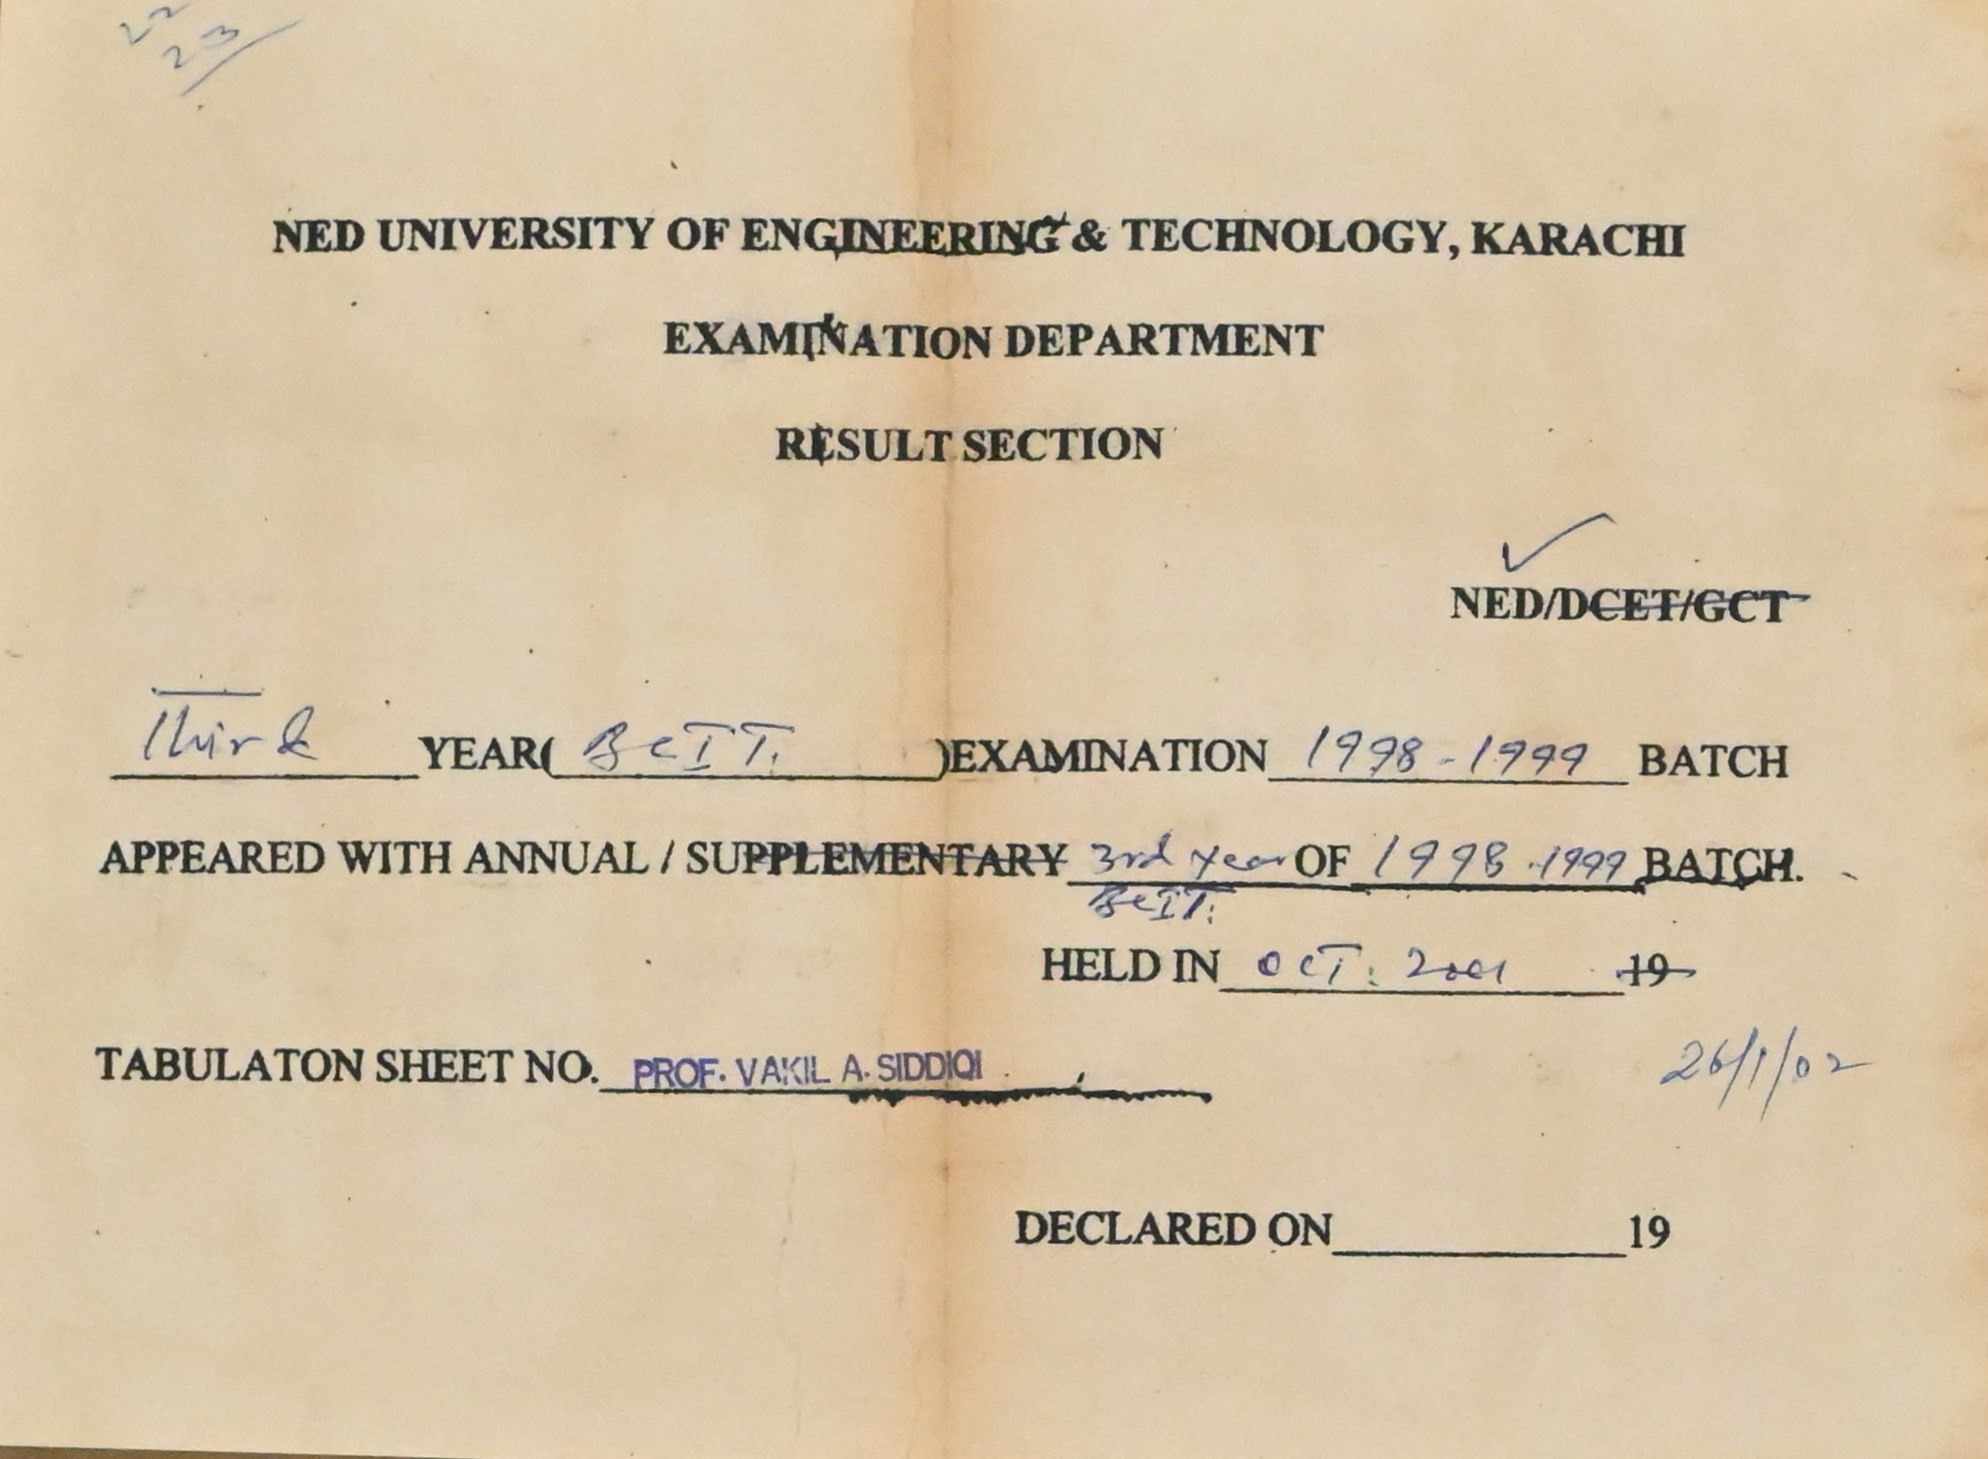 22
23
NED UNIVERSITY OF ENGINEERING & TECHNOLOGY, KARACHI
EXAMINATION DEPARTMENT
RESULT SECTION
NED/DCET/GCT
Third YEAR( BCIT. )EXAMINATION 1998-1999 BATCH
APPEARED WITH ANNUAL / SUPPLEMENTARY 3rd Year OF 1998-1999 BATCH.
BCIT.
HELD IN OCT. 2001 19
TABULATON SHEET NO. PROF. VAKIL A. SIDDIQI
26/1/02
DECLARED ON 19